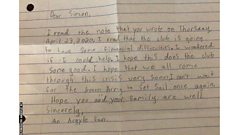 Dear Simon,
I read the note that you wrote on Thursday,
April 23, 2020. I read that the club is going
to have some financial difficulties. I wondered
if I could help. I hope this does the club
some good. I hope that we all come
through this crisis very soon. I can't wait
for the Green Army to Set Sail once again.
Hope you and your family are well
Sincerely,
An Argyle fan.